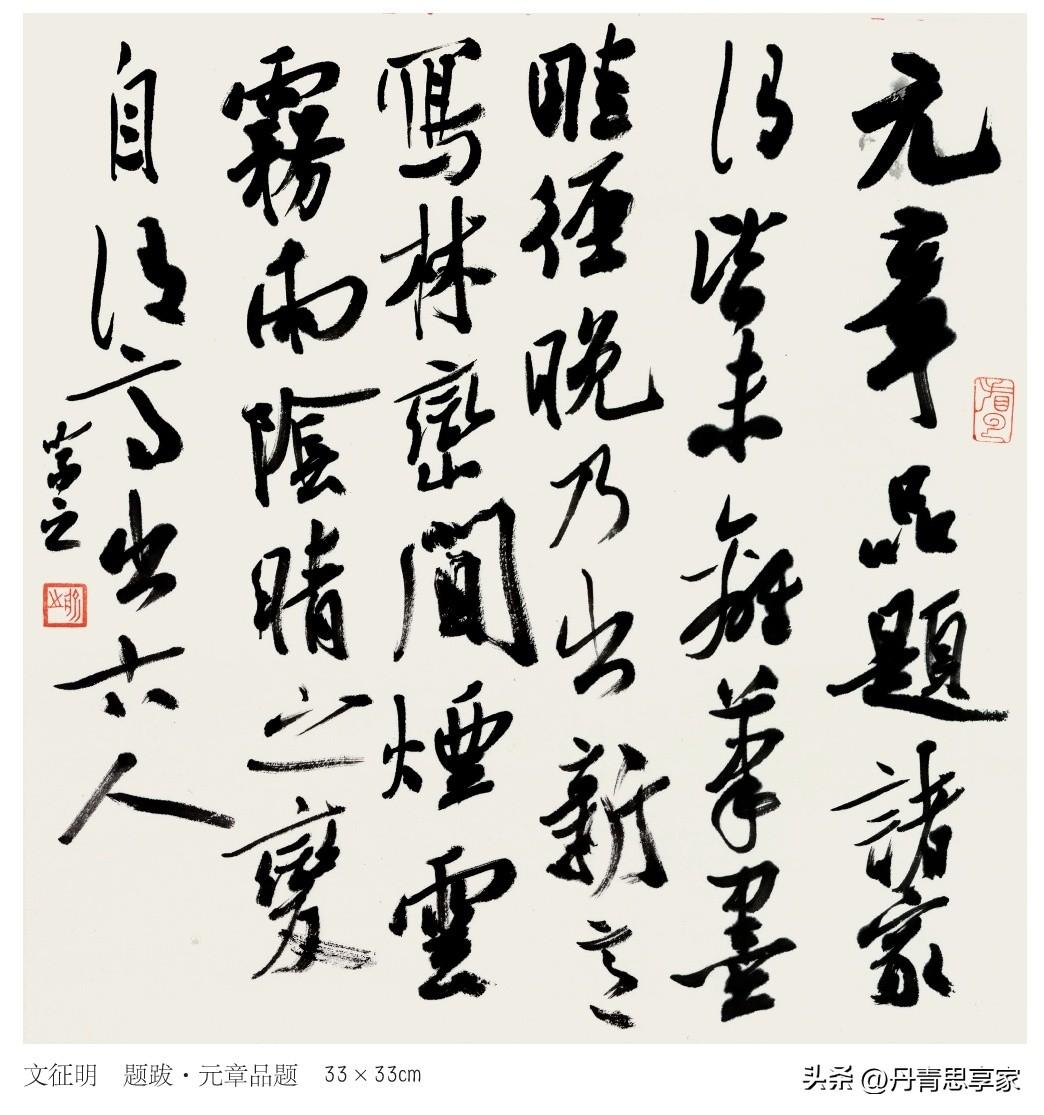 元章品題諸家
謂皆未離筆墨
畦徑晚乃出新意
寫林巒間煙雲
霧雨陰晴之變
自謂高出古人
文征明 题跋·元章品题 33×33cm
头杀 @丹青思享家